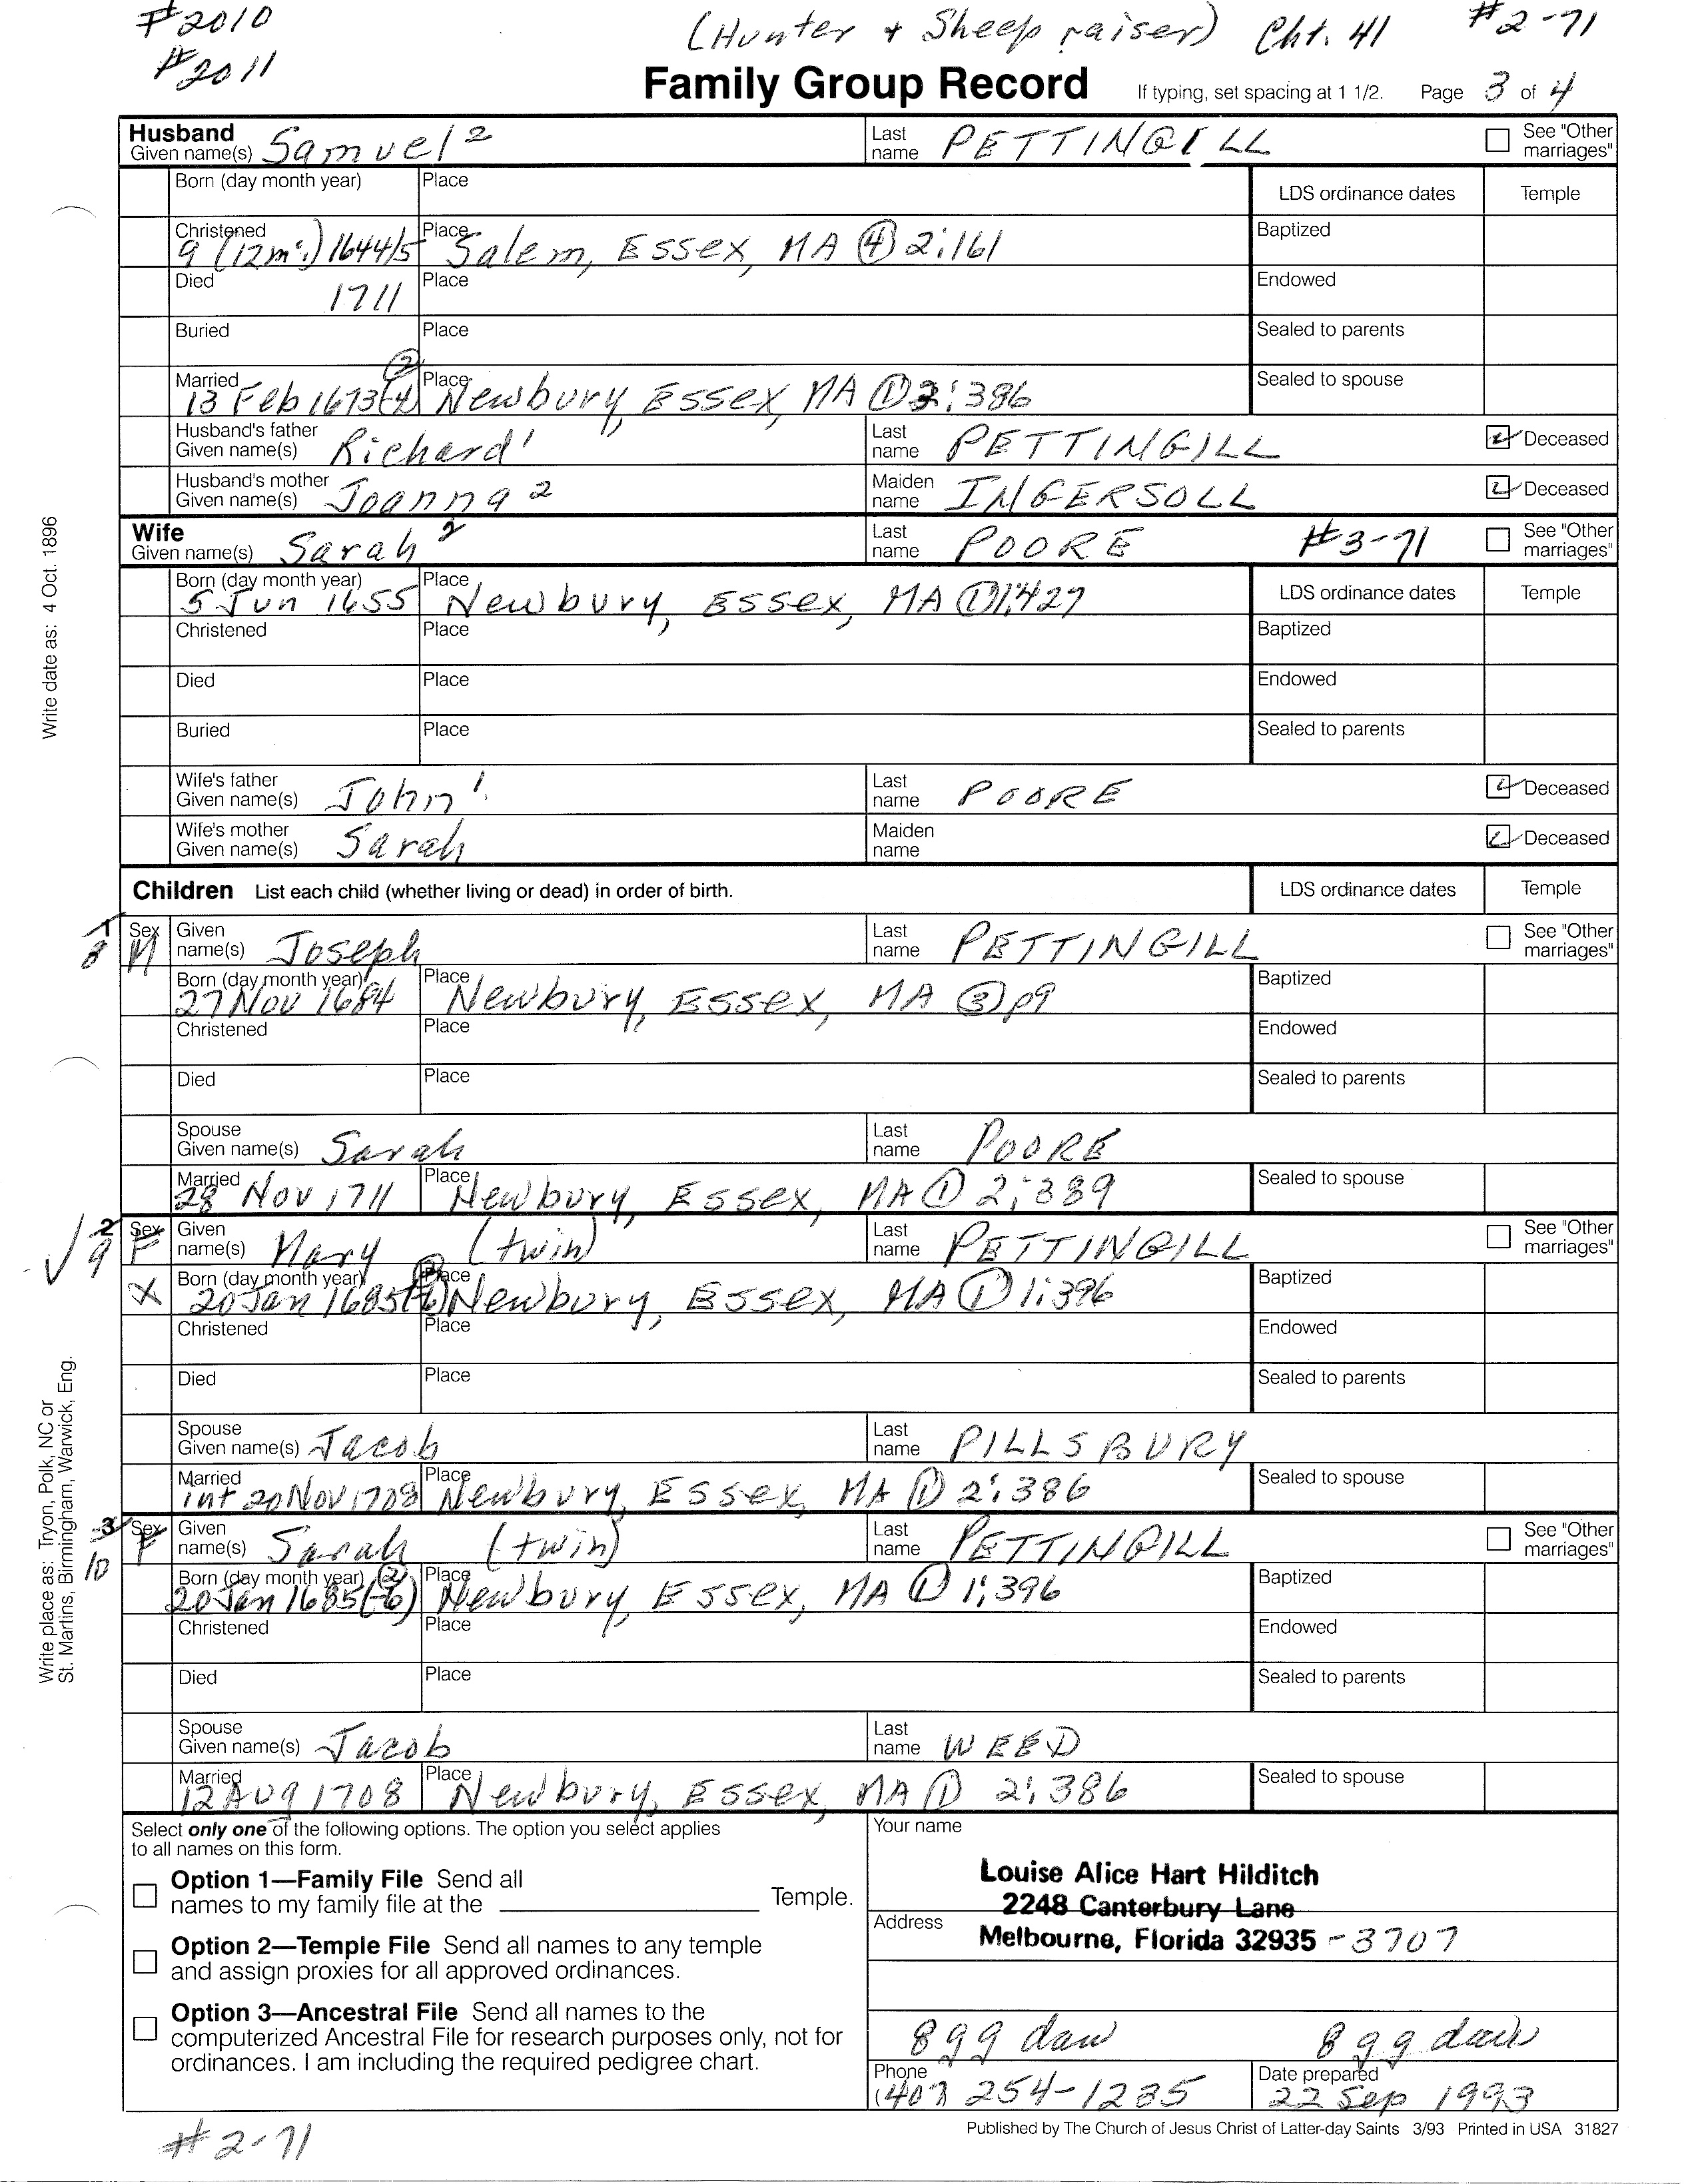 #2010
#2011
(Hunter + Sheep raiser) Cht. 41 #2-71
Family Group Record If typing, set spacing at 1 1/2. Page 3 of 4
Husband
Given name(s) Samuel² Last name PETTINGILL See "Other marriages"
Born (day month year) Place LDS ordinance dates Temple
Christened 9 (12mo:) 1644/5 Place Salem, Essex, MA ④ 2:161 Baptized
Died 1711 Place Endowed
Buried Place Sealed to parents
Married 13 Feb 1673(4) ② Place Newbury, Essex, MA ① 2:386 Sealed to spouse
Husband's father Given name(s) Richard¹ Last name PETTINGILL Deceased
Husband's mother Given name(s) Joanna² Maiden name INGERSOLL Deceased
Wife
Given name(s) Sarah² Last name POORE #3-71 See "Other marriages"
Born (day month year) 5 Jun 1655 Place Newbury, Essex, MA ① 1:427 LDS ordinance dates Temple
Christened Place Baptized
Died Place Endowed
Buried Place Sealed to parents
Wife's father Given name(s) John¹ Last name POORE Deceased
Wife's mother Given name(s) Sarah Maiden name Deceased
Children List each child (whether living or dead) in order of birth. LDS ordinance dates Temple
1 8 Sex M Given name(s) Joseph Last name PETTINGILL See "Other marriages"
Born (day month year) 27 Nov 1684 Place Newbury, Essex, MA ③ p9 Baptized
Christened Place Endowed
Died Place Sealed to parents
Spouse Given name(s) Sarah Last name POORE
Married 28 Nov 1711 Place Newbury, Essex, MA ① 2:389 Sealed to spouse
2 9 Sex F Given name(s) Mary (twin) Last name PETTINGILL See "Other marriages"
X Born (day month year) 20 Jan 1685(6) Place Newbury, Essex, MA ① 1:396 Baptized
Christened Place Endowed
Died Place Sealed to parents
Spouse Given name(s) Jacob Last name PILLSBURY
Married int 20 Nov 1708 Place Newbury, Essex, MA ① 2:386 Sealed to spouse
3 10 Sex F Given name(s) Sarah (twin) Last name PETTINGILL See "Other marriages"
Born (day month year) 20 Jan 1685(-6) ② Place Newbury, Essex, MA ① 1:396 Baptized
Christened Place Endowed
Died Place Sealed to parents
Spouse Given name(s) Jacob Last name WEED
Married 12 Aug 1708 Place Newbury, Essex, MA ① 2:386 Sealed to spouse
Select only one of the following options. The option you select applies
to all names on this form.
Option 1—Family File Send all
names to my family file at the Temple.
Option 2—Temple File Send all names to any temple
and assign proxies for all approved ordinances.
Option 3—Ancestral File Send all names to the
computerized Ancestral File for research purposes only, not for
ordinances. I am including the required pedigree chart.
Your name
Louise Alice Hart Hilditch
2248 Canterbury Lane
Address
Melbourne, Florida 32935 -3707
Phone (407) 254-1285
Date prepared 22 Sep 1993
Published by The Church of Jesus Christ of Latter-day Saints 3/93 Printed in USA 31827
#2-71
Write date as: 4 Oct. 1896
Write place as: Tryon, Polk, NC or
St. Martins, Birmingham, Warwick, Eng.